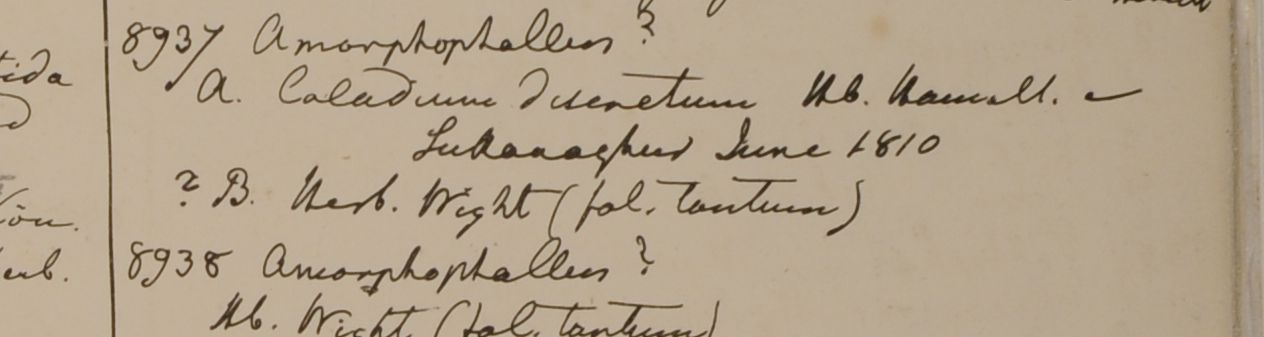 tida
8937 Amorphophallus ?
A. Caladium discretum Hb. Hamilt. -
Sukanaghur June 1810
? B. Herb. Wight (fol. tantum)
8938 Amorphophallus ?
erb.
Hb. Wight (fol. tantum)